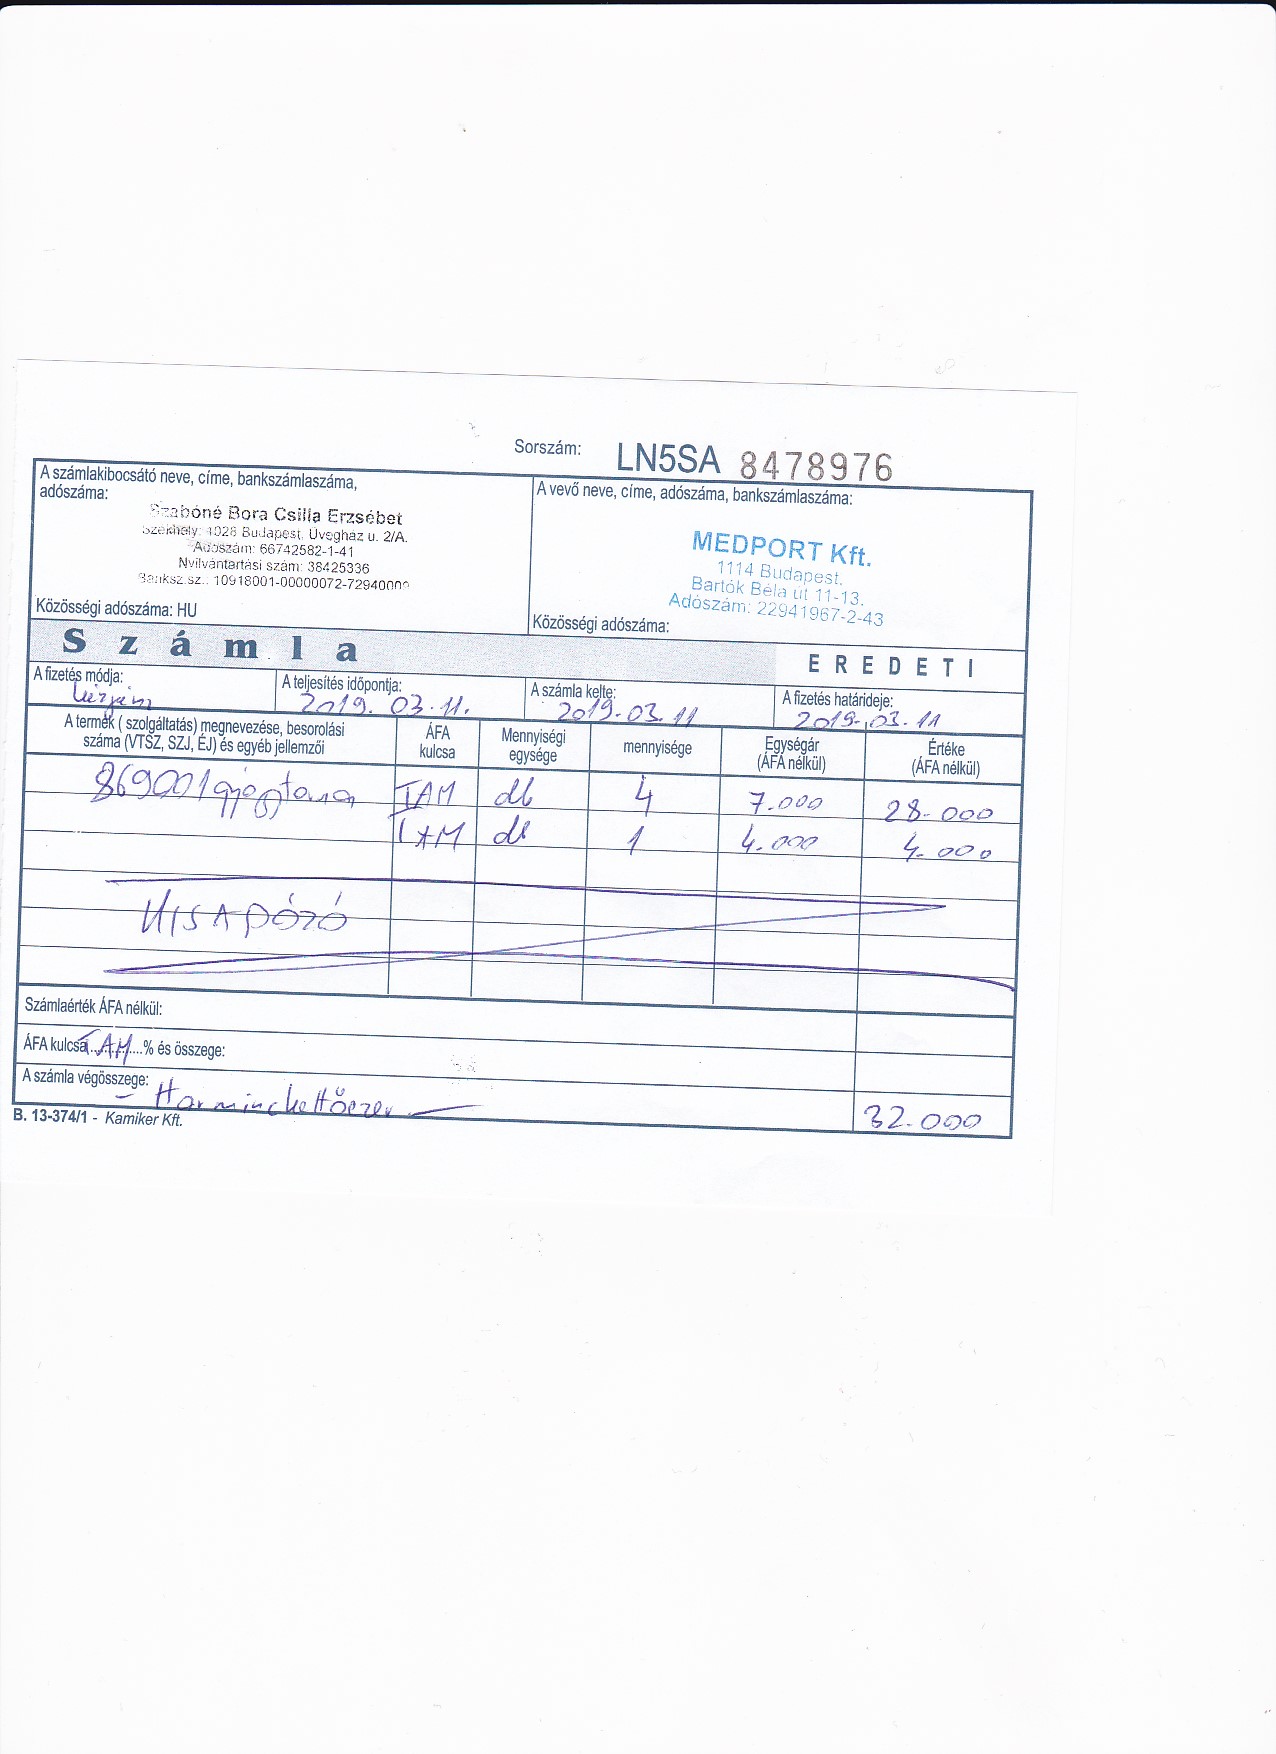 Sorszám: LN5SA 8478976
A számlakibocsátó neve, címe, bankszámlaszáma,
adószáma:
Szabóné Bora Csilla Erzsébet
Székhely: 1028 Budapest, Üvegház u. 2/A.
Adószám: 66742582-1-41
Nyilvántartási szám: 38425336
Banksz.sz.: 10918001-00000072-72940009
Közösségi adószáma: HU
A vevő neve, címe, adószáma, bankszámlaszáma:
MEDPORT Kft.
1114 Budapest,
Bartók Béla út 11-13.
Adószám: 22941967-2-43
Közösségi adószáma:
Számla
EREDETI
A fizetés módja:
A teljesítés időpontja: 2019. 03. 11.
A számla kelte: 2019. 03. 11
A fizetés határideje: 2019. 03. 11
A termék ( szolgáltatás) megnevezése, besorolási
száma (VTSZ, SZJ, ÉJ) és egyéb jellemzői
ÁFA
kulcsa
Mennyiségi
egysége
mennyisége
Egységár
(ÁFA nélkül)
Értéke
(ÁFA nélkül)
869001 gyógytorna TAM db 4 7.000 28.000
TAM db 1 4.000 4.000
KISADÓZÓ
Számlaérték ÁFA nélkül:
ÁFA kulcsa TAM % és összege:
A számla végösszege: – Harminckettőezer – 32.000
B. 13-374/1 - Kamiker Kft.